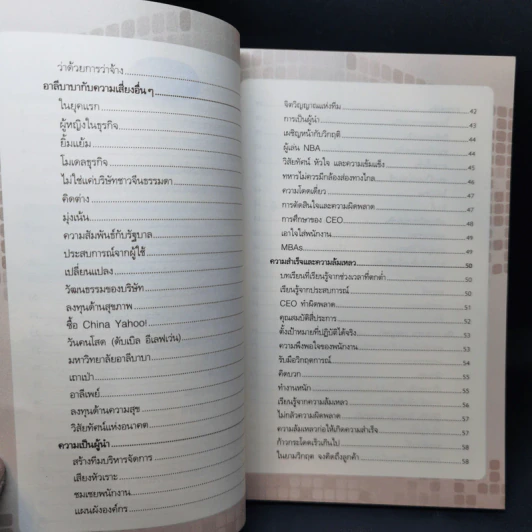 ว่าด้วยการว่าจ้าง
อาลีบาบากับความเสี่ยงอื่น ๆ
ในยุคแรก
ผู้หญิงในธุรกิจ
ยิ้มแย้ม
โมเดลธุรกิจ
ไม่ใช่แค่บริษัทชาวจีนธรรมดา
คิดต่าง
มุ่งเน้น
ความสัมพันธ์กับรัฐบาล
ประสบการณ์จากผู้ใช้
เปลี่ยนแปลง
วัฒนธรรมของบริษัท
ลงทุนด้านสุขภาพ
ซื้อ China Yahoo!
วันคนโสด (ดับเบิล อีเลฟเว่น)
มหาวิทยาลัยอาลีบาบา
เถาเป่า
อาลีเพย์
ลงทุนด้านความสุข
วิสัยทัศน์แห่งอนาคต
ความเป็นผู้นำ
สร้างทีมบริหารจัดการ
เสียงหัวเราะ
ชมเชยพนักงาน
แผนผังองค์กร
จิตวิญญาณแห่งทีม 42
การเป็นผู้นำ 43
เผชิญหน้ากับวิกฤติ 44
ผู้เล่น NBA 44
วิสัยทัศน์ หัวใจ และความเข้มแข็ง 45
ทหารไม่ควรมีกล้องส่องทางไกล 46
ความโดดเดี่ยว 46
การตัดสินใจและความผิดพลาด 47
การศึกษาของ CEO 47
เอาใจใส่พนักงาน 48
MBAs 49
ความสำเร็จและความล้มเหลว 50
บทเรียนที่เรียนรู้จากช่วงเวลาที่ตกต่ำ 50
เรียนรู้จากประสบการณ์ 50
CEO ทำผิดพลาด 51
คุณสมบัติสี่ประการ 52
ตั้งเป้าหมายที่ปฏิบัติได้จริง 53
ความพึงพอใจของพนักงาน 53
รับมือวิกฤตการณ์ 54
คิดบวก 55
ทำงานหนัก 55
เรียนรู้จากความล้มเหลว 56
ไม่กลัวความผิดพลาด 56
ความล้มเหลวก่อให้เกิดความสำเร็จ 57
ก้าวกระโดดเร็วเกินไป 58
ในยามวิกฤต จงคิดถึงลูกค้า 58